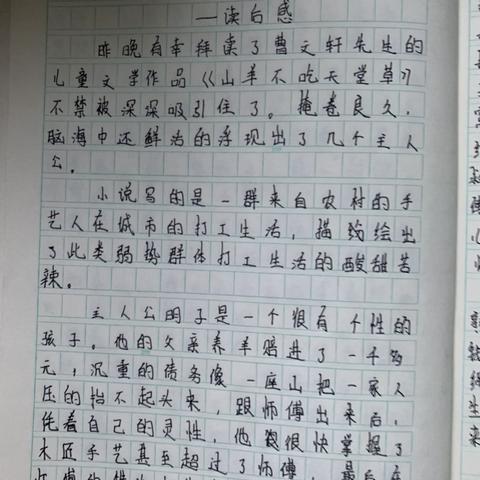 —读后感
昨晚有幸拜读了曹文轩先生的
儿童文学作品《山羊不吃天堂草》
不禁被深深吸引住了。掩卷良久，
脑海中还鲜活的浮现出了几个主人
公。
小说写的是一群来自农村的手
艺人在城市的打工生活，描绘出
了此类弱势群体打工生活的酸甜苦
辣。
主人公明子是一个很有个性的
孩子。他的父亲养羊赔进了一千多
元，沉重的债务像一座山把一家人
压的抬不起头来，跟师傅出来后，
凭着自己的灵性，他很快掌握了
木匠手艺甚至超过了师傅，最后在